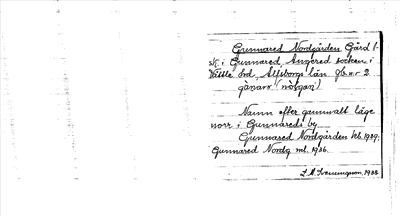 Gunnared Nordgården Gård (-
sk) i Gunnared, Angered socken i
Vättle hd, Älfsborgs län Jb.n:r 2
gånarn (nolgan)
Namn efter gammalt läge
norr i Gunnareds by.
Gunnared Nordgården kb. 1929;
Gunnared Nordg ml. 1936.
1938